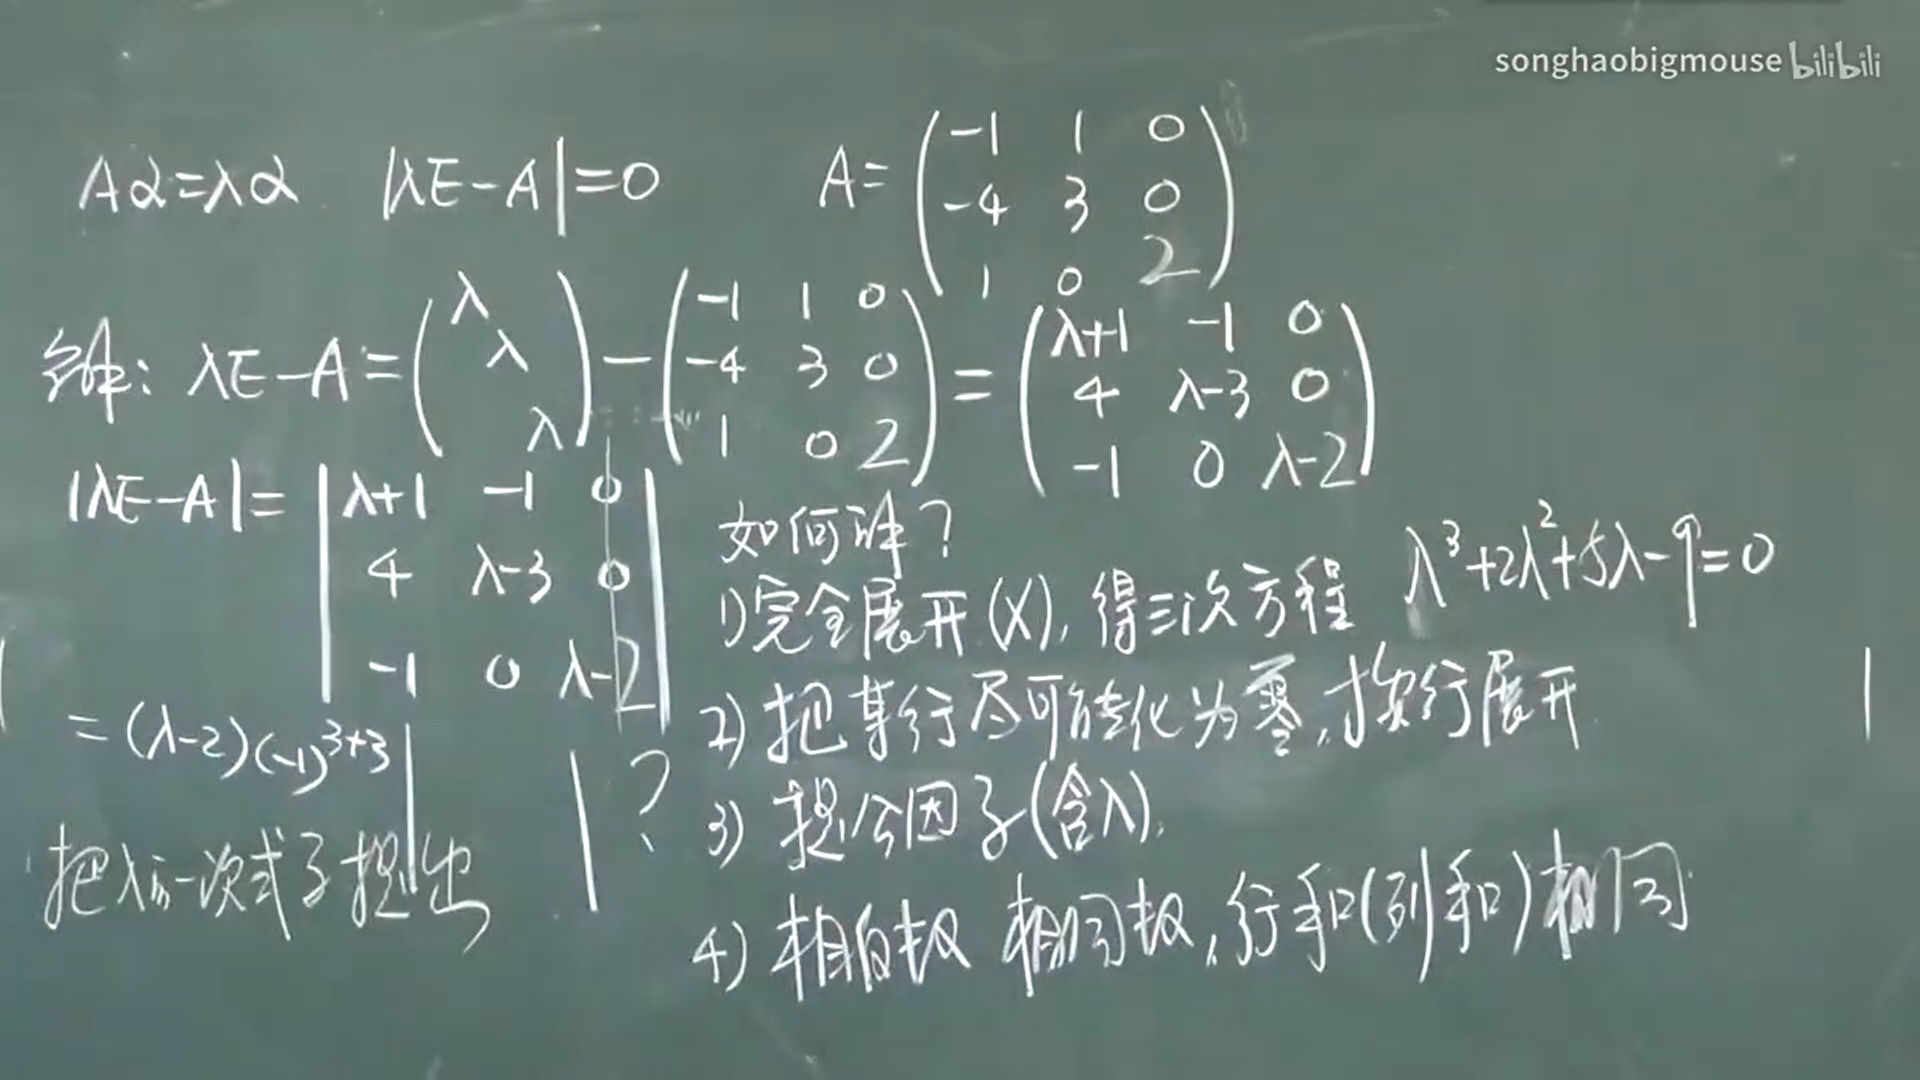 songhaobigmouse bilibili
Aα=λα |λE-A|=0 A= ( -1 1 0
-4 3 0
1 0 2 )
解: λE-A= ( λ
λ
λ ) - ( -1 1 0
-4 3 0
1 0 2 ) = ( λ+1 -1 0
4 λ-3 0
-1 0 λ-2 )
|λE-A|= | λ+1 -1 0
4 λ-3 0
-1 0 λ-2 |
=(λ-2)(-1)^{3+3} | | ?
把λ的一次式子提出
如何解?
1)完全展开(X),得三次方程 λ³+2λ²+5λ-9=0
2)把某行尽可能化为零,按行展开
3)提公因子(含λ).
4)相同,行和(列和)相同